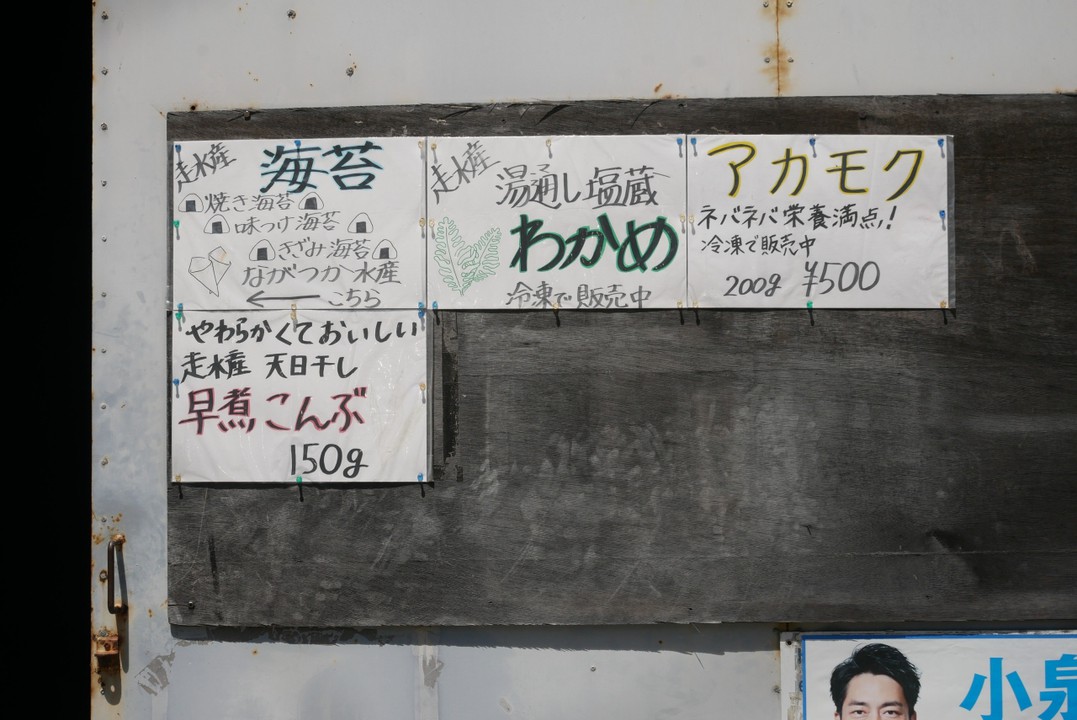 走水産 海苔
焼き海苔
味つけ海苔
きざみ海苔
ながつか水産
← こちら
走水産 湯通し塩蔵
わかめ
冷凍で販売中
アカモク
ネバネバ栄養満点!
冷凍で販売中
200g ¥500
やわらかくておいしい
走水産 天日干し
早煮こんぶ
150g
小泉